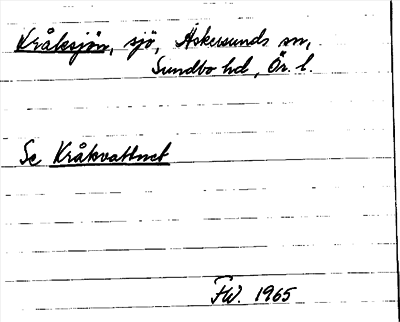 Kråksjön, sjö, Askersunds sn,
Sundbo hd, Ör. l.
Se Kråkvattnet
FW. 1965